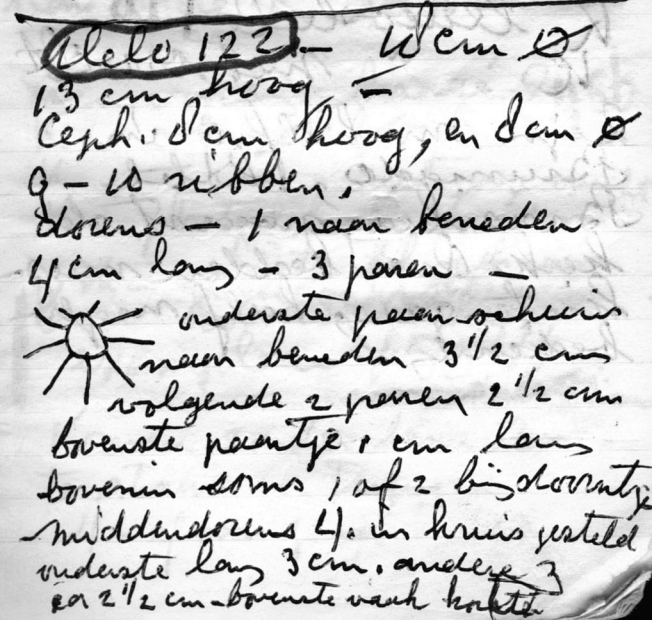 Melo 122. - 18 cm ⌀
13 cm hoog -
Ceph. 8 cm hoog, en 8 cm ⌀
9 - 10 ribben,
dorens - 1 naar beneden
4 cm lang - 3 paren -
onderste paar schuin
naar beneden 3 1/2 cm
volgende 2 paren 2 1/2 cm
bovenste paartje 1 cm lang
bovenin soms 1 of 2 bijdoorntje
middendorens 4. in kruis gesteld
onderste lang 3 cm. andere 3
ca 2 1/2 cm - bovenste vaak